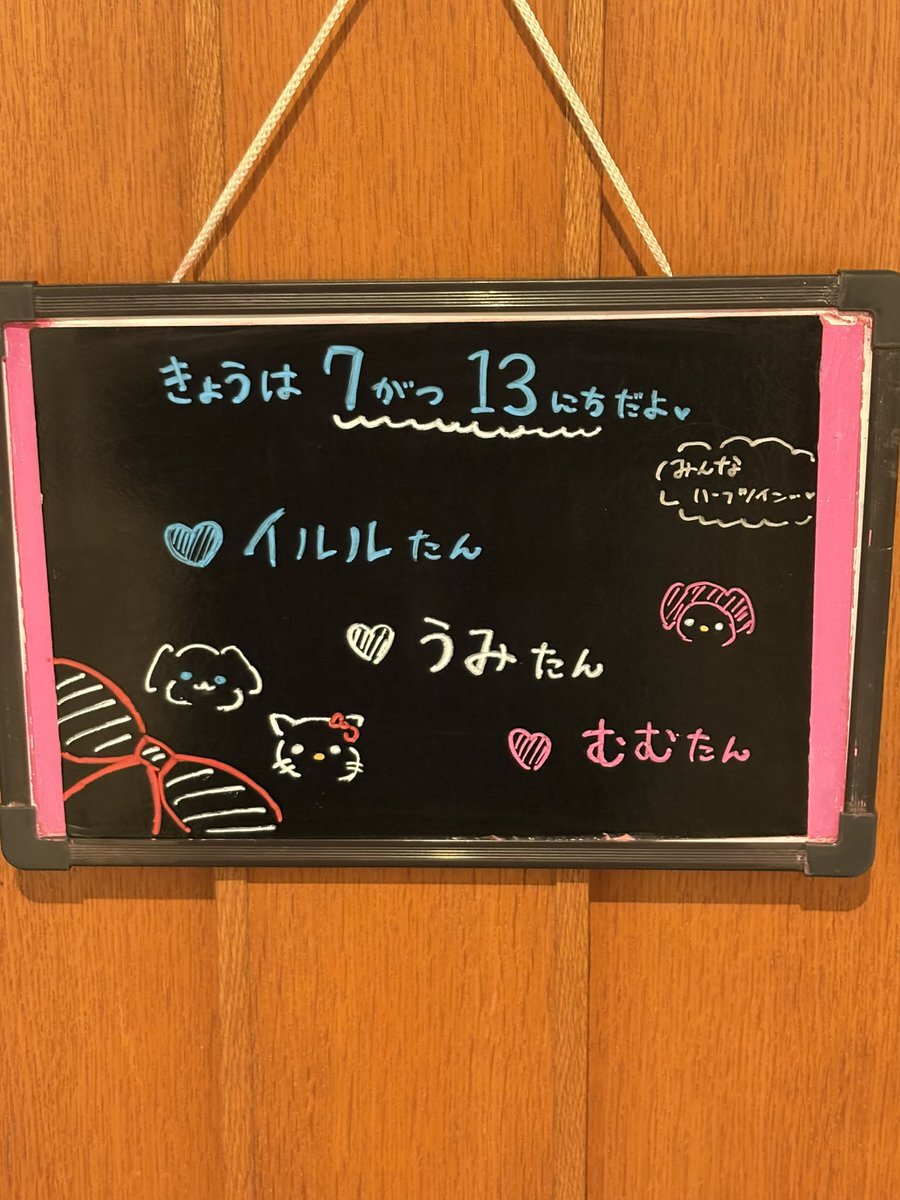 きょうは 7がつ 13にちだよ♥
みんな
ハーフツイン…♥
♥ イルルたん
♥ うみたん
♥ むむたん